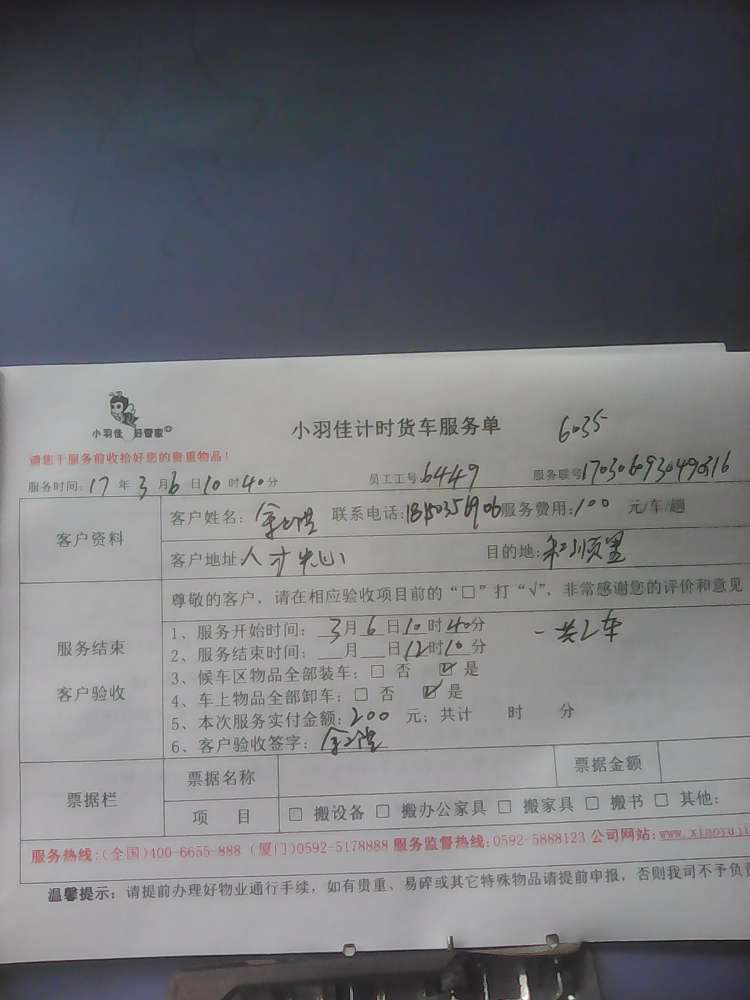 小羽佳 好管家
小羽佳计时货车服务单
6035
请您于服务前收拾好您的贵重物品！
服务时间：17 年 3 月 6 日 10 时 40 分 员工工号 6449 服务联号
客户资料
客户姓名： 联系电话： 服务费用：100 元/车/趟
客户地址 人才中心 目的地：
服务结束
客户验收
尊敬的客户，请在相应验收项目前的“□”打“√”，非常感谢您的评价和意见
1、服务开始时间： 3月 6 日 10 时 40 分
一共2车
2、服务结束时间：___月___日 12时 10 分
3、候车区物品全部装车：□ 否 ☑ 是
4、车上物品全部卸车：□ 否 ☑ 是
5、本次服务实付金额：200 元；共计 时 分
6、客户验收签字：
票据栏
票据名称 票据金额
项 目 □ 搬设备 □ 搬办公家具 □ 搬家具 □ 搬书 □ 其他：
服务热线：(全国)400-6655-888 (厦门)0592-5178888 服务监督热线：0592-5888123 公司网站：
温馨提示：请提前办理好物业通行手续，如有贵重、易碎或其它特殊物品请提前申报，否则我司不予负责